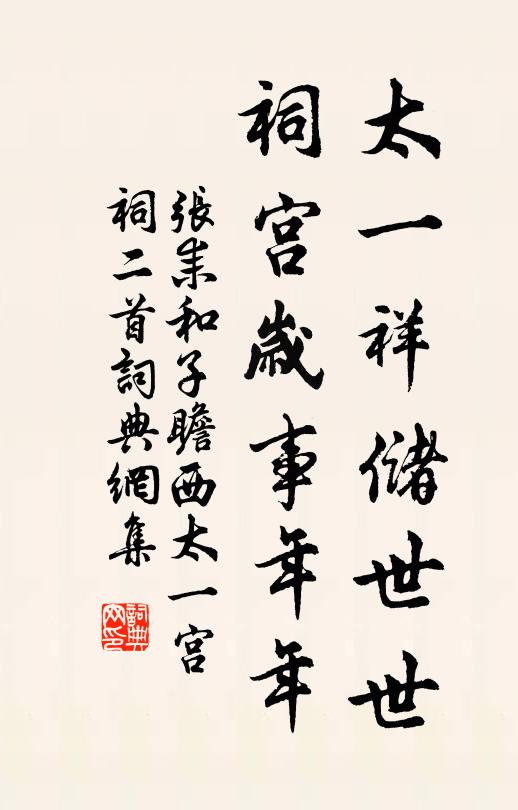 太一祥儲世世
祠宫歲事年年
張耒和子瞻西太一宫
祠二首詞典網集
詞典網印